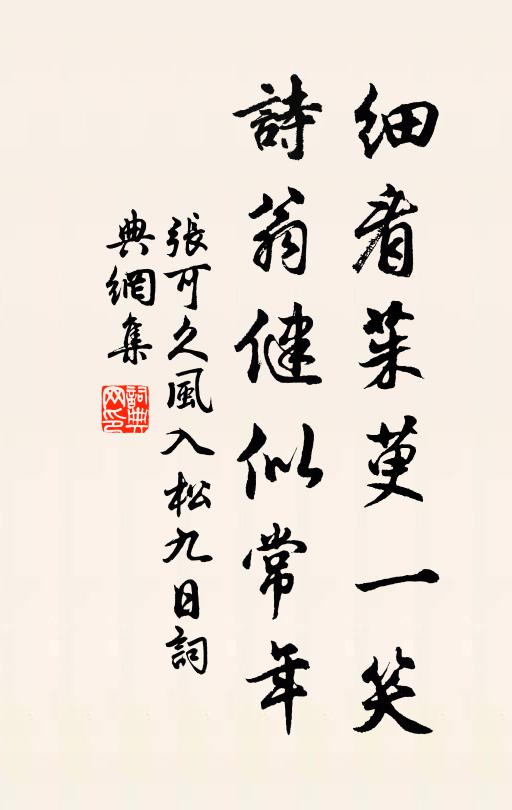 細看茱萸一笑
詩翁健似常年
張可久風入松九日詞
典網集
詞典
网印